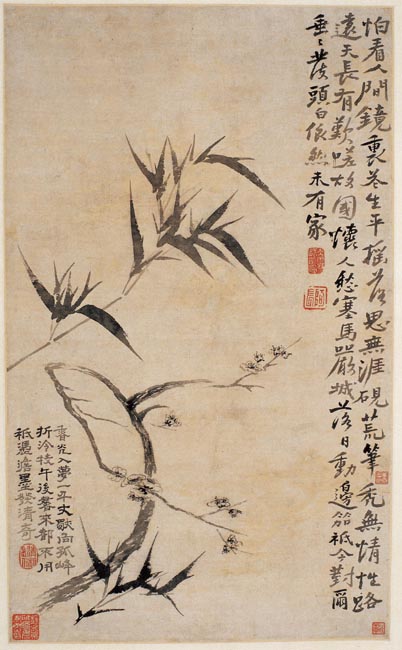 怕看人間鏡裏花生平搖落思無涯硯荒筆禿無情性路
遠天長有歎嗟故國懷人愁塞馬嚴城落日動邊笳祗今對爾
垂〻發頭白依然未有家
入夢一年孤峰
折冷枝午後來都不用
祗憑澹墨發清奇